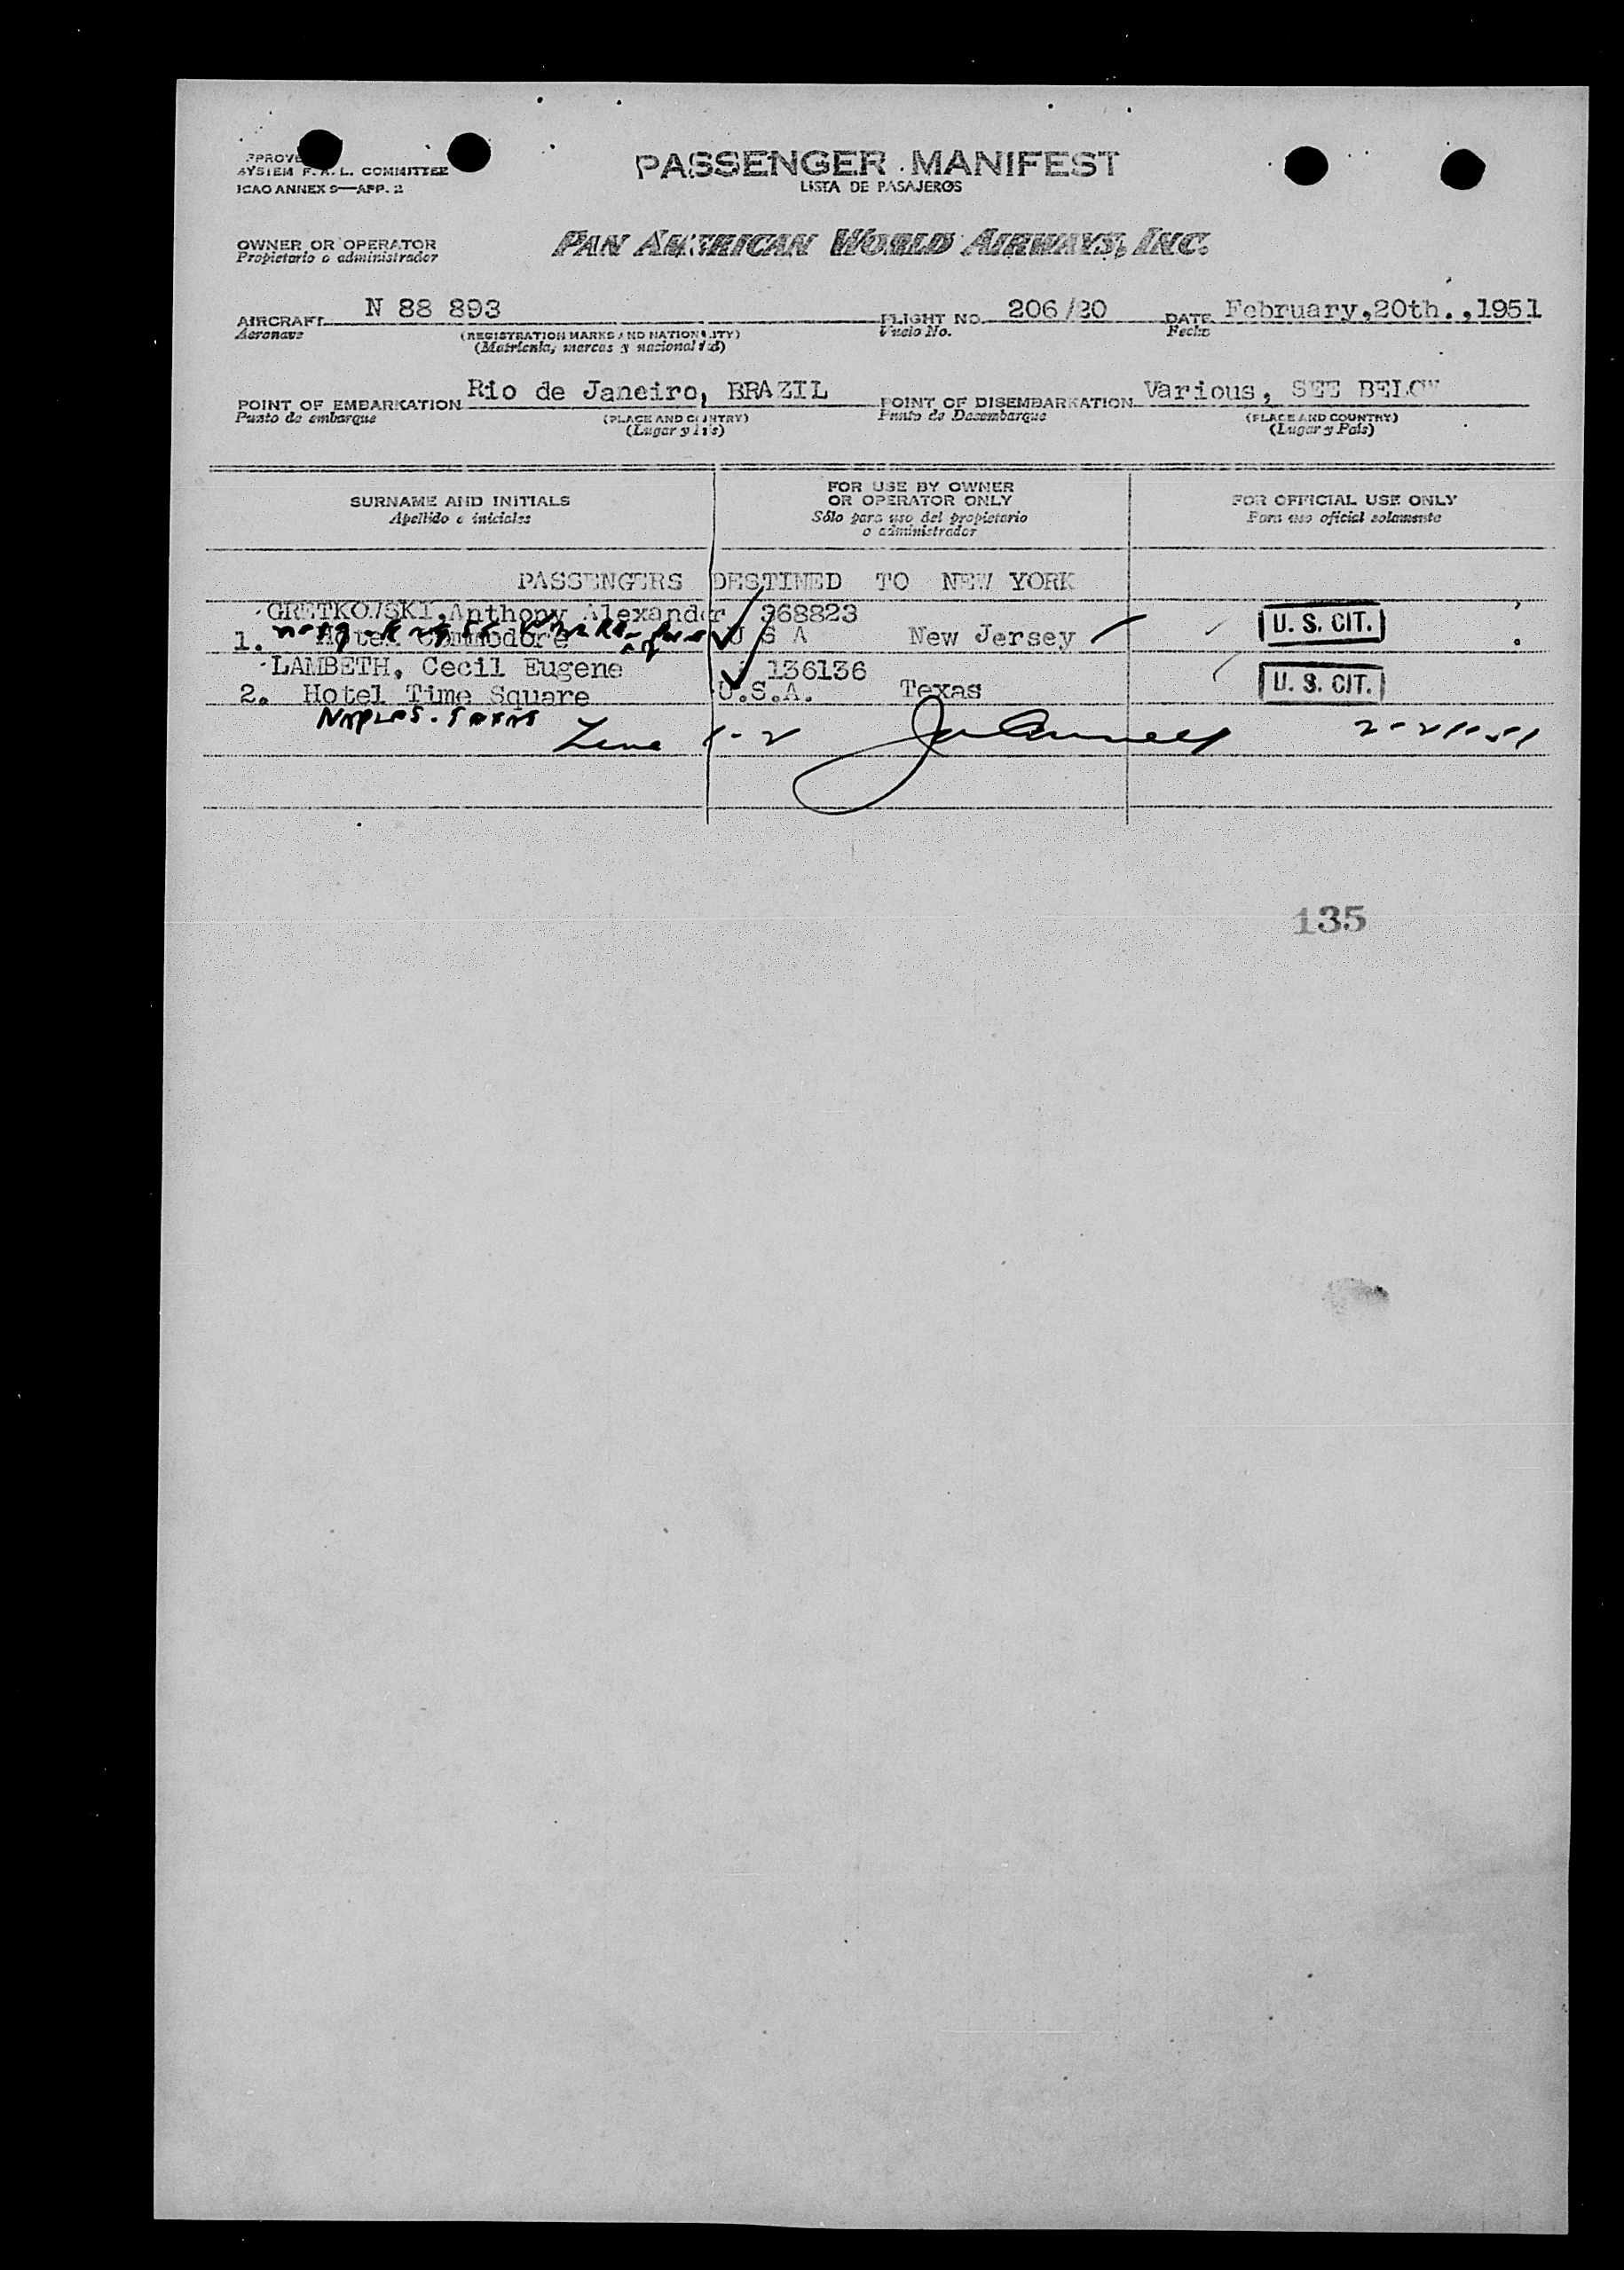 PASSENGER MANIFEST
LISTA DE PASAJEROS
SYSTEM F.A.L. COMMITTEE
ICAO ANNEX 9—APP. 2
OWNER OR OPERATOR
Propietario o administrador
PAN AMERICAN WORLD AIRWAYS, INC.
AIRCRAFT N 88 893 FLIGHT NO. 206/20 DATE February,20th.,1951
Aeronave (REGISTRATION MARKS AND NATIONALITY) Vuelo No. Fecha
(Matricula, marcas y nacionalidad)
POINT OF EMBARKATION Rio de Janeiro, BRAZIL POINT OF DISEMBARKATION Various, SEE BELOW
Punto de embarque (PLACE AND COUNTRY) Punto de Desembarque (PLACE AND COUNTRY)
(Lugar y País) (Lugar y País)
SURNAME AND INITIALS FOR USE BY OWNER OR OPERATOR ONLY FOR OFFICIAL USE ONLY
Apellido e iniciales Sólo para uso del propietario o administrador Para uso oficial solamente
PASSENGERS DESTINED TO NEW YORK
GRETKOWSKI,Anthony Alexander 368823
1. Hotel Commodore U S A New Jersey U. S. CIT.
LAMBETH, Cecil Eugene 136136
2. Hotel Time Square U.S.A. Texas U. S. CIT.
NAPLES. TEXAS
Line 1-2 2-21-51
135